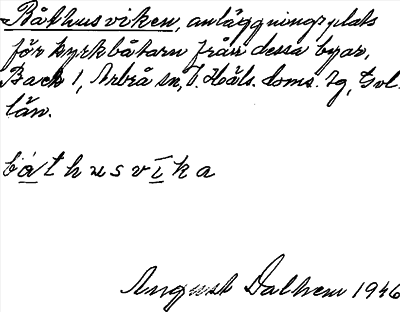 Båthusviken, anläggningsplats
för kyrkbåtarn från dessa byar,
Back 1, Arbrå sn, V. Häls. doms. lg, Gvl.
län.
båthusvíka
August Dalhem 1946